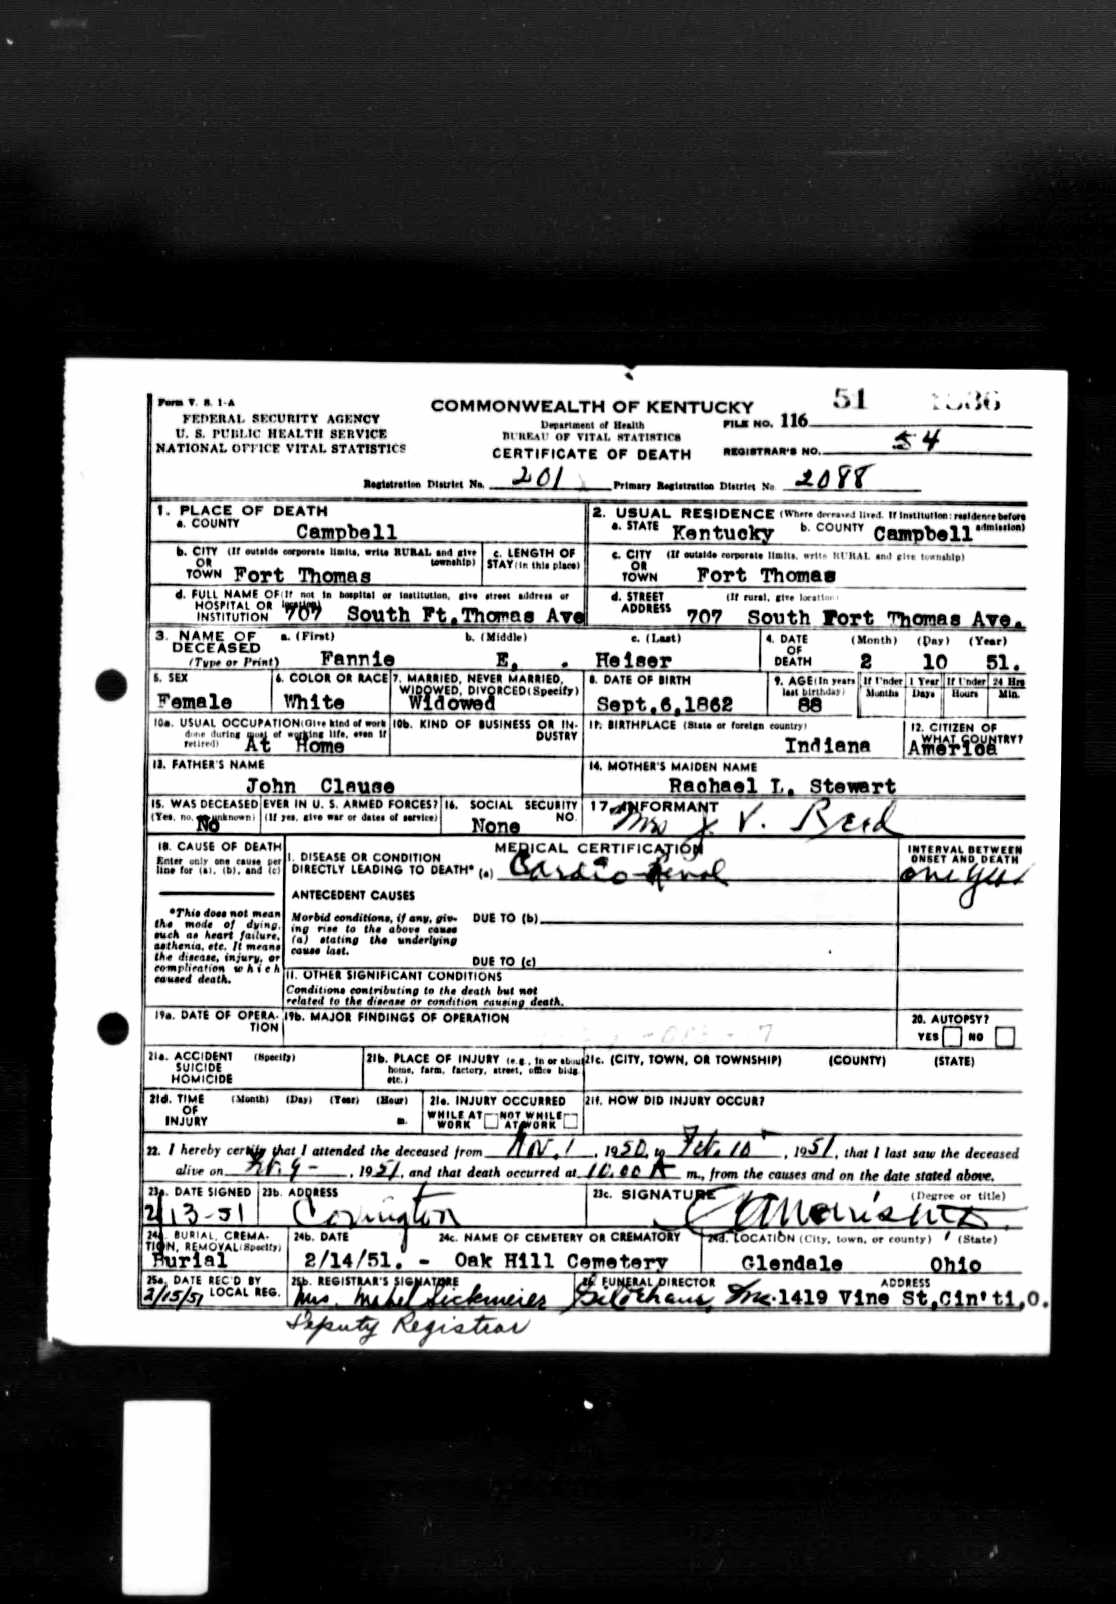 Form V. S. 1-A
FEDERAL SECURITY AGENCY
U. S. PUBLIC HEALTH SERVICE
NATIONAL OFFICE VITAL STATISTICS
COMMONWEALTH OF KENTUCKY
Department of Health
BUREAU OF VITAL STATISTICS
CERTIFICATE OF DEATH
51
FILE NO. 116
REGISTRAR'S NO. 54
Registration District No. 201 Primary Registration District No. 2088
1. PLACE OF DEATH
a. COUNTY Campbell
2. USUAL RESIDENCE (Where deceased lived. If institution: residence before admission)
a. STATE Kentucky b. COUNTY Campbell
b. CITY OR TOWN (If outside corporate limits, write RURAL and give township) Fort Thomas
c. LENGTH OF STAY (in this place)
c. CITY OR TOWN (If outside corporate limits, write RURAL and give township) Fort Thomas
d. FULL NAME OF HOSPITAL OR INSTITUTION (If not in hospital or institution, give street address or location) 707 South Ft. Thomas Ave
d. STREET ADDRESS (If rural, give location) 707 South Fort Thomas Ave.
3. NAME OF DECEASED (Type or Print) a. (First) Fannie b. (Middle) E. c. (Last) Heiser
4. DATE OF DEATH (Month) (Day) (Year) 2 10 51.
5. SEX Female
6. COLOR OR RACE White
7. MARRIED, NEVER MARRIED, WIDOWED, DIVORCED (Specify) Widowed
8. DATE OF BIRTH Sept.6,1862
9. AGE (In years last birthday) 88
If Under 1 Year Months Days
If Under 24 Hrs Hours Min.
10a. USUAL OCCUPATION (Give kind of work done during most of working life, even if retired) At Home
10b. KIND OF BUSINESS OR INDUSTRY
11. BIRTHPLACE (State or foreign country) Indiana
12. CITIZEN OF WHAT COUNTRY? America
13. FATHER'S NAME John Clause
14. MOTHER'S MAIDEN NAME Rachael L. Stewart
15. WAS DECEASED EVER IN U. S. ARMED FORCES? (Yes, no, or unknown) (If yes, give war or dates of service) No
16. SOCIAL SECURITY NO. None
17. INFORMANT Mrs J. V. Reed
18. CAUSE OF DEATH
Enter only one cause per line for (a), (b), and (c)
MEDICAL CERTIFICATION
I. DISEASE OR CONDITION DIRECTLY LEADING TO DEATH* (a) Cardio-Renal
INTERVAL BETWEEN ONSET AND DEATH
one year
*This does not mean the mode of dying, such as heart failure, asthenia, etc. It means the disease, injury, or complication which caused death.
ANTECEDENT CAUSES
Morbid conditions, if any, giving rise to the above cause (a) stating the underlying cause last.
DUE TO (b)
DUE TO (c)
II. OTHER SIGNIFICANT CONDITIONS
Conditions contributing to the death but not related to the disease or condition causing death.
19a. DATE OF OPERATION
19b. MAJOR FINDINGS OF OPERATION
20. AUTOPSY?
YES NO
21a. ACCIDENT SUICIDE HOMICIDE (Specify)
21b. PLACE OF INJURY (e.g., in or about home, farm, factory, street, office bldg. etc.)
21c. (CITY, TOWN, OR TOWNSHIP) (COUNTY) (STATE)
21d. TIME OF INJURY (Month) (Day) (Year) (Hour) m.
21e. INJURY OCCURRED
WHILE AT WORK NOT WHILE AT WORK
21f. HOW DID INJURY OCCUR?
22. I hereby certify that I attended the deceased from Nov. 1, 1950, to Feb. 10, 1951, that I last saw the deceased
alive on Feb. 9-, 1951, and that death occurred at 10.00 A m., from the causes and on the date stated above.
23a. DATE SIGNED 2/13-51
23b. ADDRESS Covington
23c. SIGNATURE (Degree or title)
24a. BURIAL, CREMATION, REMOVAL (Specify) Burial
24b. DATE 2/14/51. -
24c. NAME OF CEMETERY OR CREMATORY Oak Hill Cemetery
24d. LOCATION (City, town, or county) (State) Glendale Ohio
25a. DATE REC'D BY LOCAL REG. 2/15/51
25b. REGISTRAR'S SIGNATURE Mrs. Mabel
Deputy Registrar
26. FUNERAL DIRECTOR Inc. ADDRESS 1419 Vine St, Cin'ti, O.